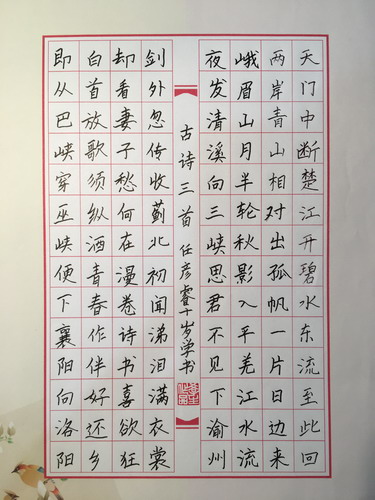 天门中断楚江开碧水东流至此回
两岸青山相对出孤帆一片日边来
峨眉山月半轮秋影入平羌江水流
夜发清溪向三峡思君不见下渝州
古诗三首 任彦睿十岁学书
剑外忽传收蓟北初闻涕泪满衣裳
却看妻子愁何在漫卷诗书喜欲狂
白首放歌须纵酒青春作伴好还乡
即从巴峡穿巫峡便下襄阳向洛阳